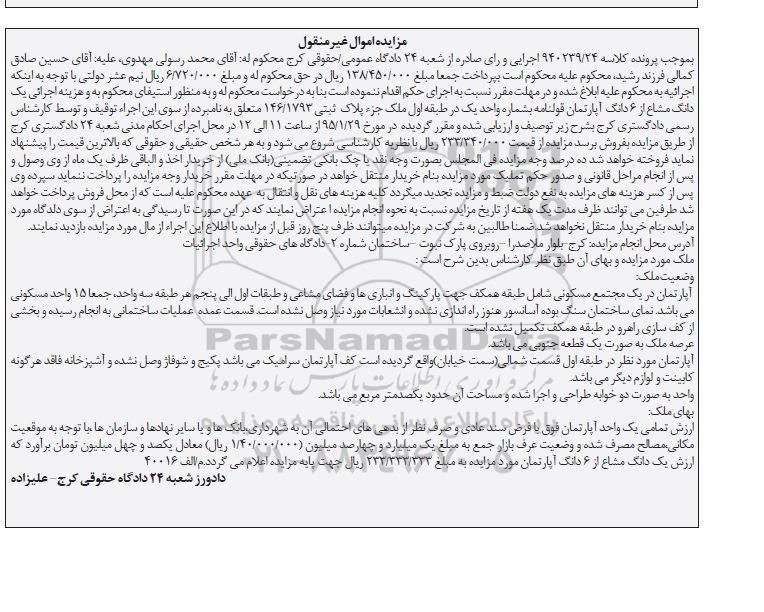 مزایده اموال غیر منقول
بموجب پرونده کلاسه ۹۴۰۲۳۹/۲۴ اجرایی و رای صادره از شعبه ۲۴ دادگاه عمومی/حقوقی کرج محکوم له: آقای محمد رسولی مهدوی، علیه: آقای حسین صادق
کمالی فرزند رشید، محکوم علیه محکوم است بپرداخت جمعا مبلغ ۱۳۸/۴۵۰/۰۰۰ ریال در حق محکوم له و مبلغ ۶/۷۲۰/۰۰۰ ریال نیم عشر دولتی با توجه به اینکه
اجرائیه به محکوم علیه ابلاغ شده و در مهلت مقرر نسبت به اجرای حکم اقدام ننموده است بنا به درخواست محکوم له و به منظور استیفای محکوم به و هزینه اجرائی یک
دانگ مشاع از ۶ دانگ آپارتمان قولنامه بشماره واحد یک در طبقه اول ملک جزء پلاک ثبتی ۱۴۶/۱۷۹۳ متعلق به نامبرده از سوی این اجراء توقیف و توسط کارشناس
رسمی دادگستری کرج بشرح زیر توصیف و ارزیابی شده و مقرر گردیده در مورخ ۹۵/۱/۲۹ از ساعت ۱۱ الی ۱۲ در محل اجرای احکام مدنی شعبه ۲۴ دادگستری کرج
از طریق مزایده بفروش برسد مزایده از قیمت ۲۳۳/۳۴۰/۰۰۰ ریال با نظریه کارشناسی شروع می شود و به هر شخص حقیقی و حقوقی که بالاترین قیمت را پیشنهاد
نماید فروخته خواهد شد ده درصد وجه مزایده فی المجلس بصورت وجه نقد یا چک بانکی تضمینی(بانک ملی) از خریدار اخذ و الباقی ظرف یک ماه از وی وصول و
پس از انجام مراحل قانونی و صدور حکم تملیک مورد مزایده بنام خریدار منتقل خواهد در صورتیکه در مهلت مقرر خریدار وجه مزایده را پرداخت ننماید سپرده وی
پس از کسر هزینه های مزایده به نفع دولت ضبط و مزایده تجدید میگردد کلیه هزینه های نقل و انتقال به عهده محکوم علیه است که از محل فروش پرداخت خواهد
شد طرفین می توانند ظرف مدت یک هفته از تاریخ مزایده نسبت به نحوه انجام مزایده اعتراض نمایند که در این صورت تا رسیدگی به اعتراض از سوی دادگاه مورد
مزایده بنام خریدار منتقل نخواهد شد ضمنا طالبین به شرکت در مزایده میتوانند ظرف پنج روز قبل از مزایده با اطلاع این اجراء از مال مورد مزایده بازدید نمایند.
آدرس محل انجام مزایده: کرج-بلوار ملاصدرا –روبروی پارک نبوت –ساختمان شماره ۲-دادگاه های حقوقی واحد اجرائیات
ملک مورد مزایده و بهای آن طبق نظر کارشناس بدین شرح است :
وضعیت ملک:
آپارتمان در یک مجتمع مسکونی شامل طبقه همکف جهت پارکینگ و انباری ها و فضای مشاعی و طبقات اول الی پنجم هر طبقه سه واحد، جمعا ۱۵ واحد مسکونی
می باشد. نمای ساختمان سنگ بوده آسانسور هنوز راه اندازی نشده و انشعابات مورد نیاز وصل نشده است. قسمت عمده عملیات ساختمانی به انجام رسیده و بخشی
از کف سازی راهرو در طبقه همکف تکمیل نشده است.
عرصه ملک به صورت یک قطعه جنوبی می باشد.
آپارتمان مورد نظر در طبقه اول قسمت شمالی(سمت خیابان)واقع گردیده است کف آپارتمان سرامیک می باشد پکیج و شوفاژ وصل نشده و آشپزخانه فاقد هر گونه
کابینت و لوازم دیگر می باشد.
واحد به صورت دو خوابه طراحی و اجرا شده و مساحت آن حدود یکصد متر مربع می باشد.
بهای ملک:
ارزش تمامی یک واحد آپارتمان فوق با فرض سند عادی و صرف نظر از بدهی های احتمالی آن به شهرداری،بانک ها و یا سایر نهادها و سازمان ها ،با توجه به موقعیت
مکانی،مصالح مصرف شده و وضعیت عرف بازار جمع به مبلغ یک میلیارد و چهارصد میلیون (۱/۴۰/۰۰۰/۰۰۰ ریال) معادل یکصد و چهل میلیون تومان برآورد که
ارزش یک دانگ مشاع از ۶ دانگ آپارتمان مورد مزایده به مبلغ ۲۳۳/۳۳۳/۳۳۳ ریال جهت پایه مزایده اعلام می گردد.م/الف ۴۰۰۱۶
دادورز شعبه ۲۴ دادگاه حقوقی کرج– علیزاده
ParsNamadData